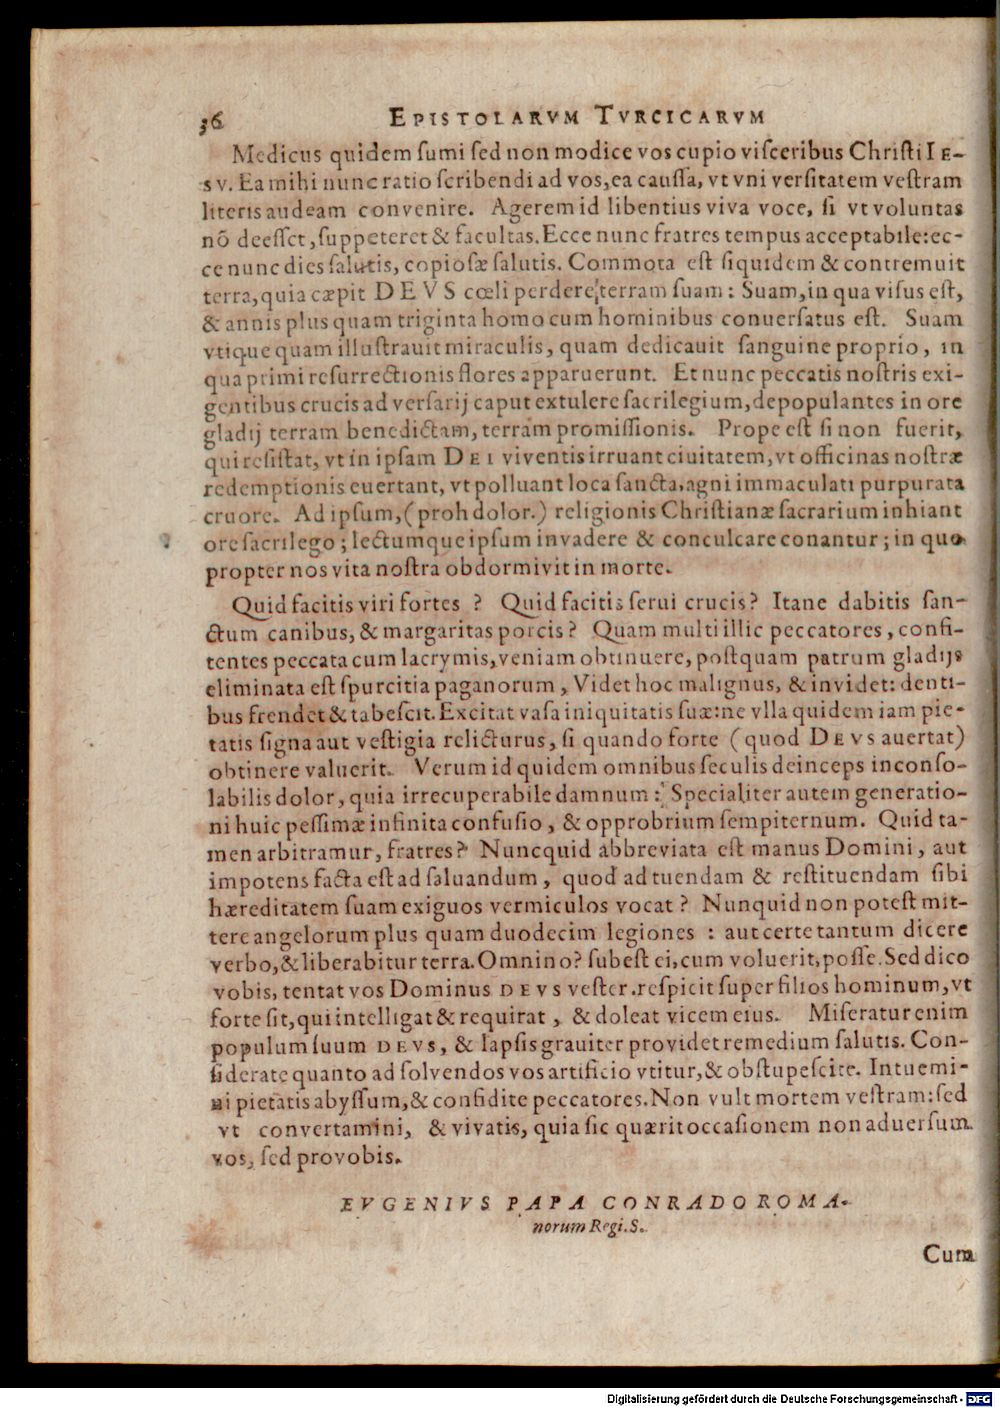 36 EPISTOLARVM TVRCICARVM
Medicus quidem ſumi ſed non modice vos cupio viſceribus Chriſti IE-
SV. Ea mihi nunc ratio ſcribendi ad vos, ea cauſſa, vt vni verſitatem veſtram
literis audeam convenire. Agerem id libentius viva voce, ſi vt voluntas
nõ deeſſet, ſuppeteret & facultas. Ecce nunc fratres tempus acceptabile: ec-
ce nunc dies ſalutis, copioſæ ſalutis. Commota eſt ſiquidem & contremuit
terra, quia cæpit DEVS cœli perdere terram ſuam: Suam, in qua viſus eſt,
& annis plus quam triginta homo cum hominibus conuerſatus eſt. Suam
vtique quam illuſtrauit miraculis, quam dedicauit ſanguine proprio, in
qua primi reſurrectionis flores apparuerunt. Et nunc peccatis noſtris exi-
gentibus crucis ad verſarij caput extulere ſacrilegium, depopulantes in ore
gladij terram benedictam, terram promiſſionis. Prope eſt ſi non fuerit,
qui reſiſtat, vt in ipſam DEI viventis irruant ciuitatem, vt officinas noſtræ
redemptionis euertant, vt polluant loca ſancta, agni immaculati purpurata
cruore. Ad ipſum, (proh dolor.) religionis Chriſtianæ ſacrarium inhiant
ore ſacrilego; lectumque ipſum invadere & conculcare conantur; in quo
propter nos vita noſtra obdormivit in morte.
Quid facitis viri fortes ? Quid facitis ſerui crucis? Itane dabitis ſan-
ctum canibus, & margaritas porcis? Quam multi illic peccatores, confi-
tentes peccata cum lacrymis, veniam obtinuere, poſtquam patrum gladijs
eliminata eſt ſpurcitia paganorum, Videt hoc malignus, & invidet: denti-
bus frendet & tabeſcit. Excitat vaſa iniquitatis ſuæ: ne vlla quidem iam pie-
tatis ſigna aut veſtigia relicturus, ſi quando forte (quod DEVS auertat)
obtinere valuerit. Verum id quidem omnibus ſeculis deinceps inconſo-
labilis dolor, quia irrecuperabile damnum: Specialiter autem generatio-
ni huic peſſimæ infinita confuſio, & opprobrium ſempiternum. Quid ta-
men arbitramur, fratres? Nuncquid abbreviata eſt manus Domini, aut
impotens facta eſt ad ſaluandum, quod ad tuendam & reſtituendam ſibi
hæreditatem ſuam exiguos vermiculos vocat? Nunquid non poteſt mit-
tere angelorum plus quam duodecim legiones : aut certe tantum dicere
verbo, & liberabitur terra. Omnino? ſubeſt ei, cum voluerit, poſſe. Sed dico
vobis, tentat vos Dominus DEVS veſter. reſpicit ſuper filios hominum, vt
forte ſit, qui intelligat & requirat, & doleat vicem eius. Miſeratur enim
populum ſuum DEVS, & lapſis grauiter providet remedium ſalutis. Con-
ſiderate quanto ad ſolvendos vos artificio vtitur, & obſtupeſcite. Intuemi-
ni pietatis abyſſum, & confidite peccatores. Non vult mortem veſtram: ſed
vt convertamini, & vivatis, quia ſic quærit occaſionem non aduerſum
vos, ſed pro vobis.
EVGENIVS PAPA CONRADO ROMA-
norum Regi. S.
Cum
Digitalisierung gefördert durch die Deutsche Forschungsgemeinschaft - DFG